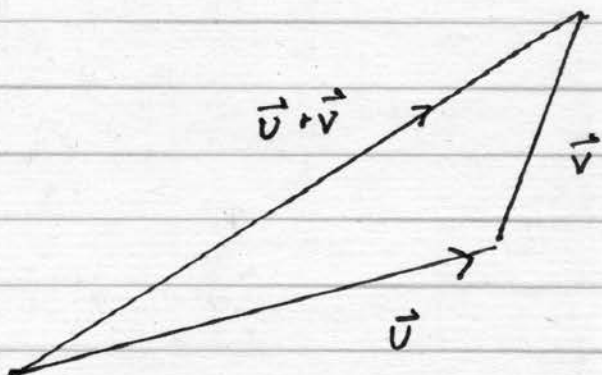 u⃗ + v⃗
v⃗
u⃗